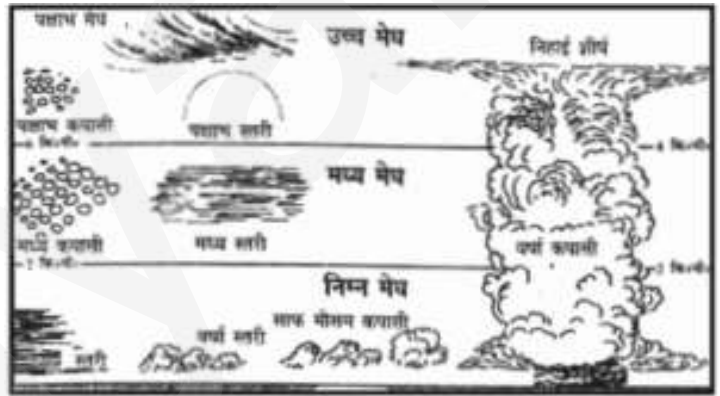 पक्षाभ मेघ
उच्च मेघ
निहाई शीर्ष
पक्षाभ कपासी
पक्षाभ स्तरी
6 कि॰मी॰
मध्य मेघ
मध्य कपासी
मध्य स्तरी
वर्षा कपासी
2 कि॰मी॰
2 कि॰मी॰
निम्न मेघ
साफ मौसम कपासी
वर्षा स्तरी
स्तरी